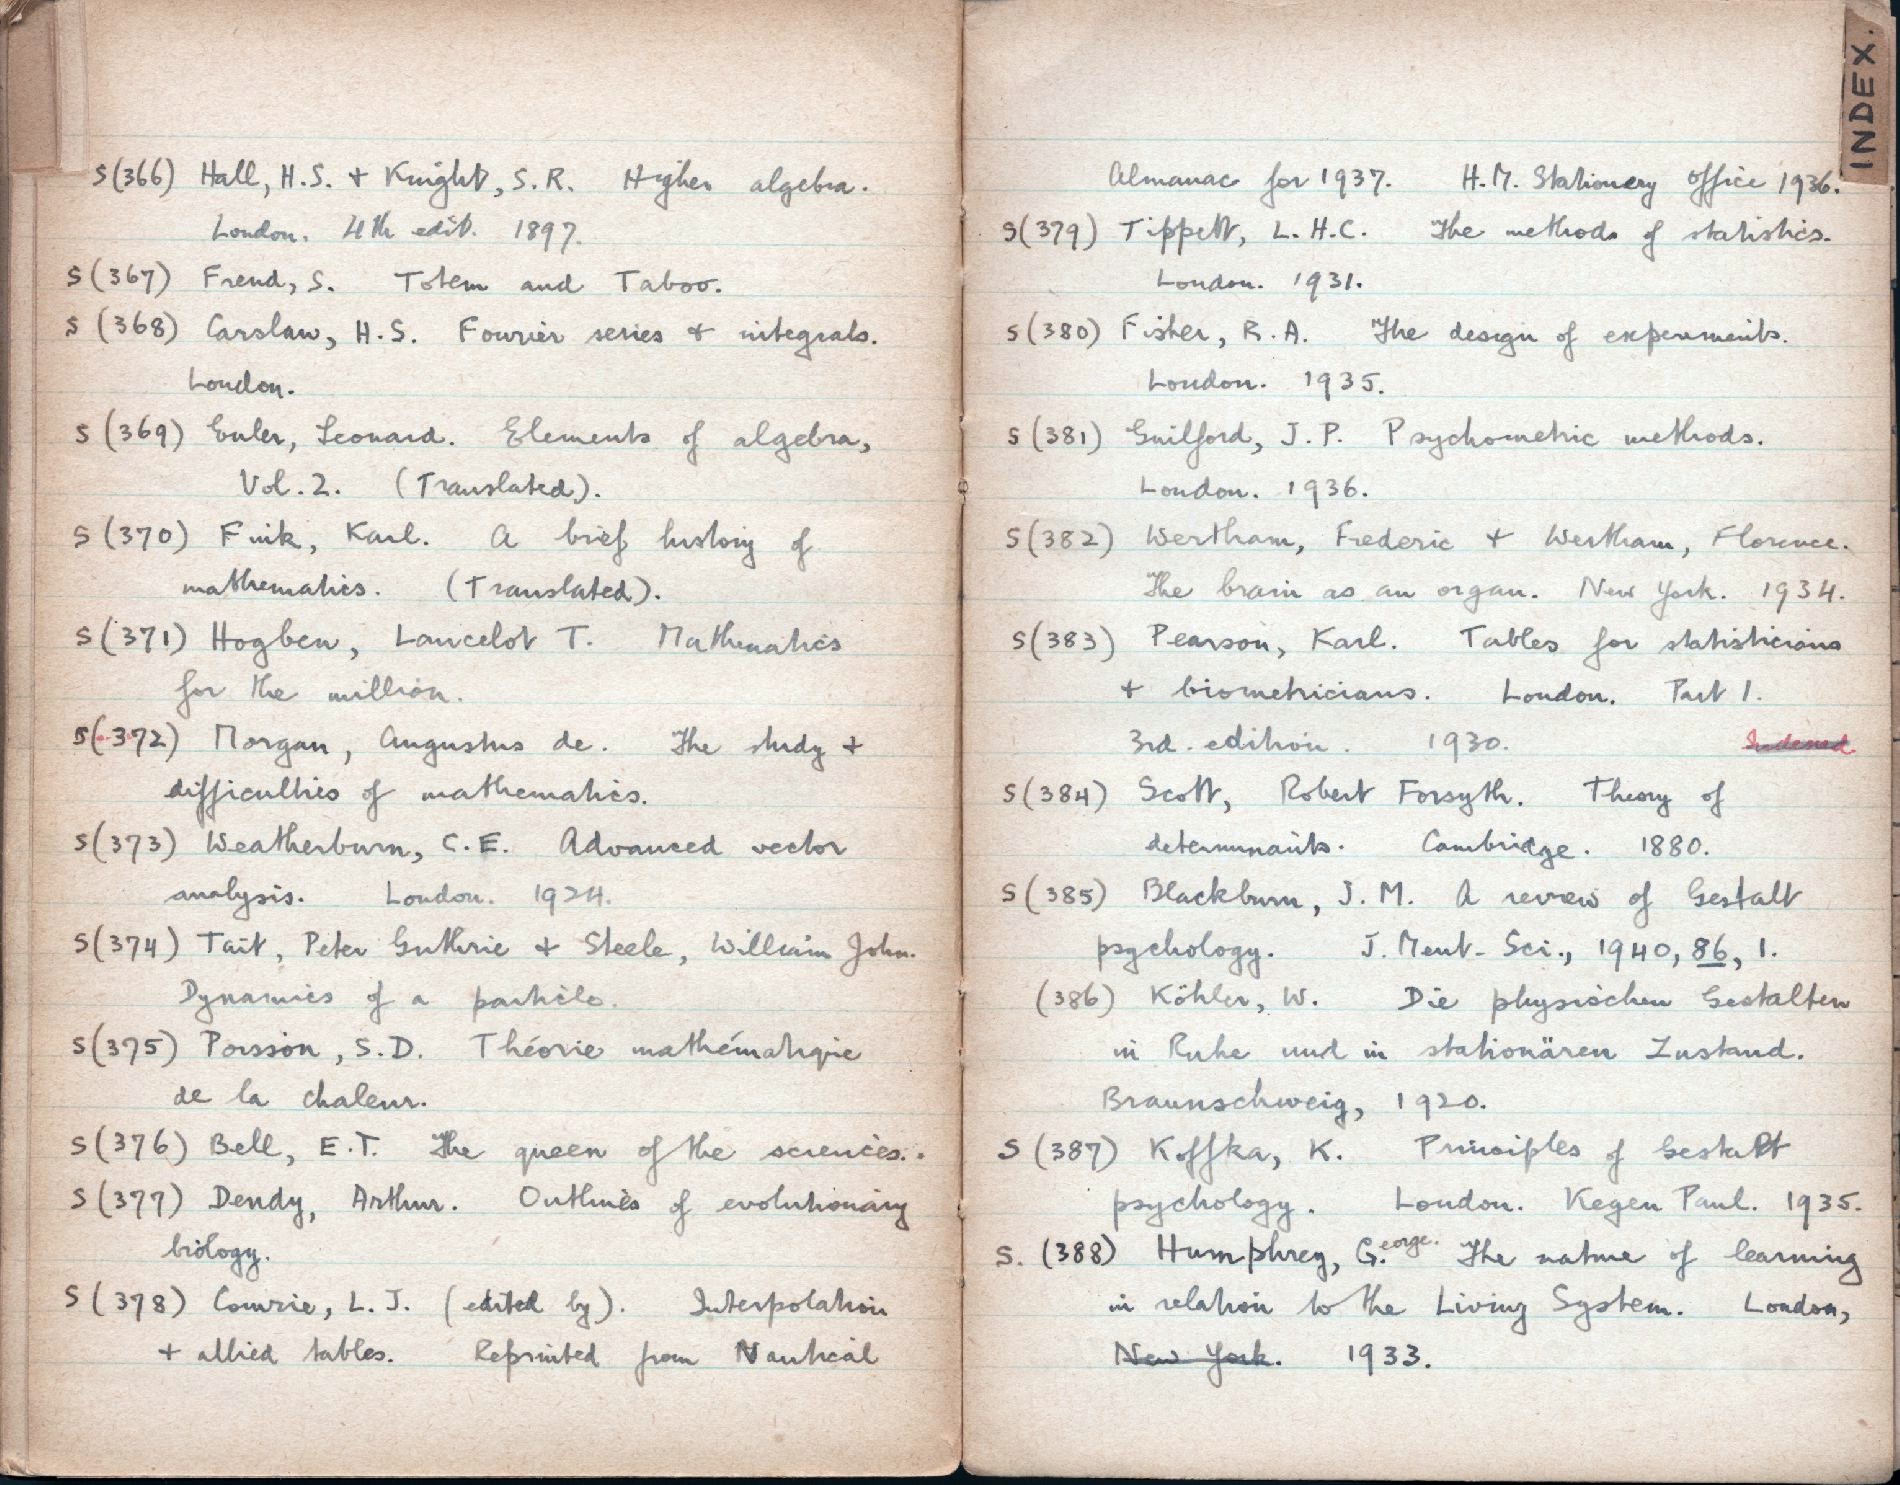 S(366) Hall, H.S. + Knight, S.R. Higher algebra.
London. 4th edit. 1897.
S(367) Freud, S. Totem and Taboo.
S(368) Carslaw, H.S. Fourier series + integrals.
London.
S(369) Euler, Leonard. Elements of algebra,
Vol. 2. (Translated).
S(370) Fink, Karl. A brief history of
mathematics. (Translated).
S(371) Hogben, Lancelot T. Mathematics
for the million.
S(372) Morgan, Augustus de. The study +
difficulties of mathematics.
S(373) Weatherburn, C.E. Advanced vector
analysis. London. 1924.
S(374) Tait, Peter Guthrie + Steele, William John.
Dynamics of a particle.
S(375) Poisson, S.D. Théorie mathématique
de la chaleur.
S(376) Bell, E.T. The queen of the sciences.
S(377) Dendy, Arthur. Outlines of evolutionary
biology.
S(378) Comrie, L.J. (edited by). Interpolation
+ allied tables. Reprinted from Nautical
INDEX.
Almanac for 1937. H.M. Stationery Office 1936.
S(379) Tippett, L.H.C. The methods of statistics.
London. 1931.
S(380) Fisher, R.A. The design of experiments.
London. 1935.
S(381) Guilford, J.P. Psychometric methods.
London. 1936.
S(382) Wertham, Frederic + Wertham, Florence.
The brain as an organ. New York. 1934.
S(383) Pearson, Karl. Tables for statisticians
+ biometricians. London. Part 1.
3rd. edition. 1930. Indexed
S(384) Scott, Robert Forsyth. Theory of
determinants. Cambridge. 1880.
S(385) Blackburn, J.M. A review of Gestalt
psychology. J. Ment. Sci., 1940, 86, 1.
(386) Köhler, W. Die physischen Gestalten
in Ruhe und in stationären Zustand.
Braunschweig, 1920.
S(387) Koffka, K. Principles of Gestalt
psychology. London. Kegen Paul. 1935.
S. (388) Humphrey, G.eorge. The nature of learning
in relation to the Living System. London,
New York. 1933.